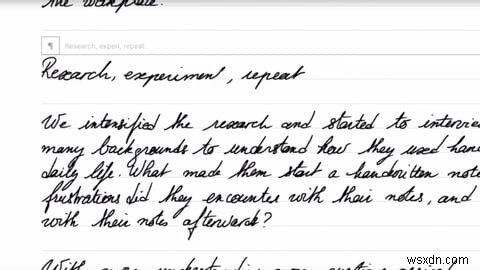 the workplace.
¶ Research, experi, repeat
Research, experiment, repeat
We intensified the research and started to intervie
many backgrounds to understand how they used han
daily life. What made them start a handwritten note
frustrations did they encounter with their notes, and
with their notes afterwards?
wsxdn.com